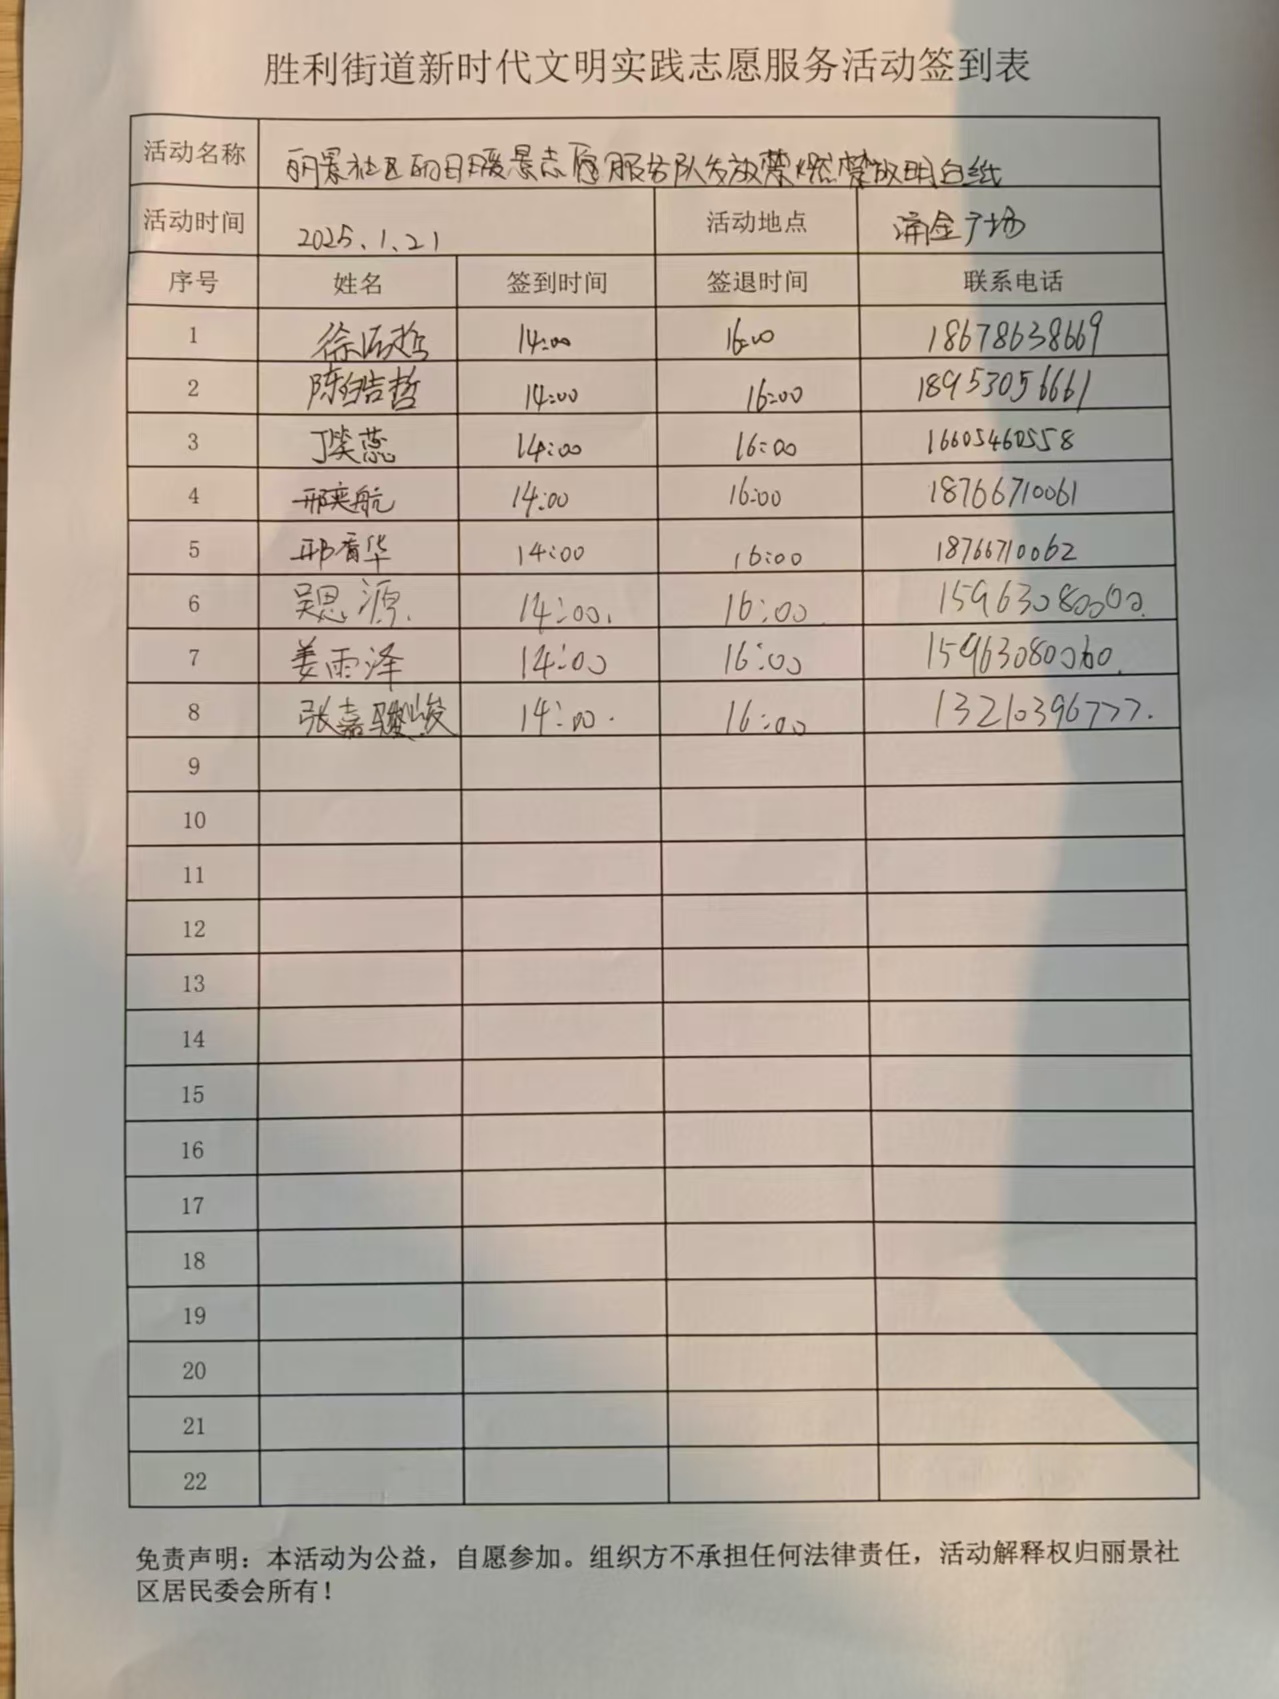 胜利街道新时代文明实践志愿服务活动签到表
活动名称 丽景社区丽日暖景志愿服务队发放禁燃禁放明白纸
活动时间 2025.1.21 活动地点 涌金广场
序号 姓名 签到时间 签退时间 联系电话
1 徐 14:00 16:00 18678638669
2 陈皓哲 14:00 16:00 18953056661
3 丁笑蕊 14:00 16:00 16605460558
4 邢奕航 14:00 16:00 18766710061
5 邢香华 14:00 16:00 18766710062
6 吴思源. 14:00. 16:00. 15963080000.
7 姜雨泽 14:00 16:00 15963080060.
8 张嘉骏 14:00. 16:00 13210396777.
9
10
11
12
13
14
15
16
17
18
19
20
21
22
免责声明：本活动为公益，自愿参加。组织方不承担任何法律责任，活动解释权归丽景社
区居民委会所有！